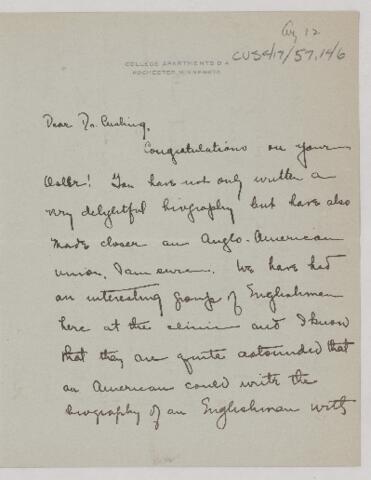 Aug 12
CUS417/57,146
COLLEGE APARTMENTS D 4
ROCHESTER, MINNESOTA
Dear Dr. Cushing,
Congratulations on your
Osler! You have not only written a
very delightful biography but have also
made closer an Anglo-American
union, I am sure. We have had
an interesting group of Englishmen
here at the clinic and I know
that they are quite astounded that
an American could write the
biography of an Englishman with